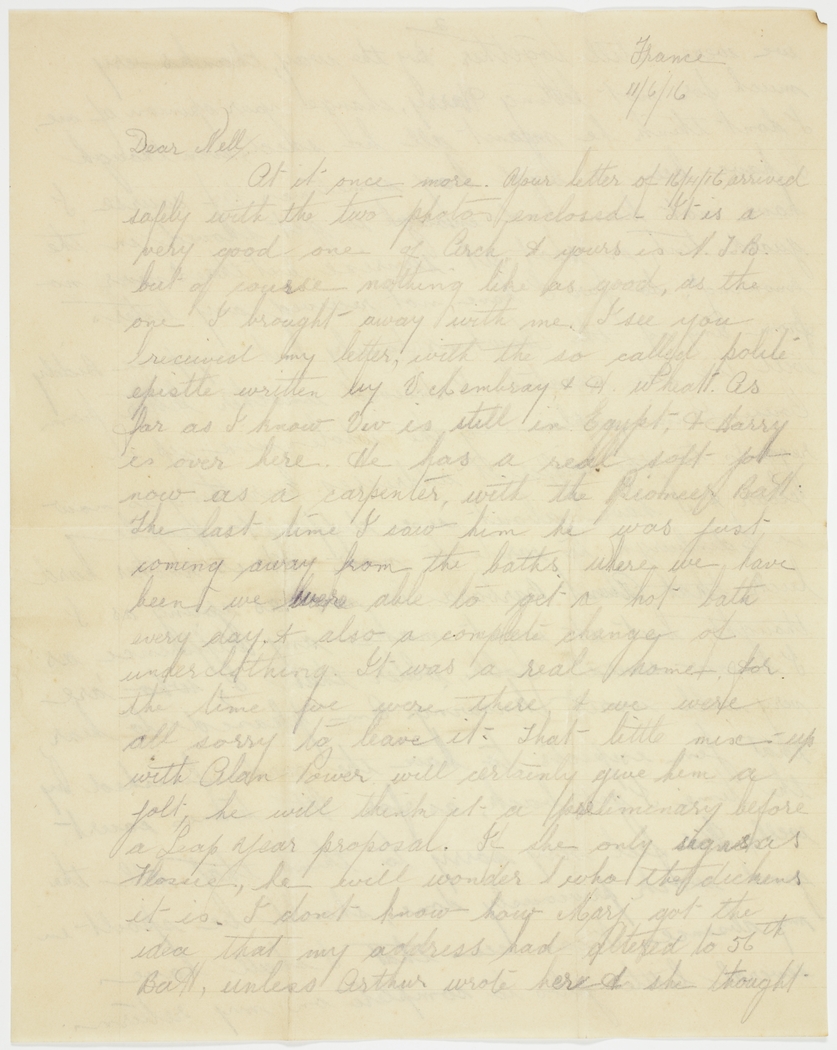 France
11/6/16
Dear Nell,
At it once more. Your letter of 16/4/16 arrived
safely with the two photos enclosed. It is a
very good one of Arch, & yours is N.T.B.
but of course nothing like as good, as the
one I brought away with me. I see you
received my letter, with the so called polite
epistle written by V. & H. Wheatt. As
far as I know Viv is still in Egypt, & Harry
is over here. He has a real soft job
now as a carpenter, with the Pioneer Batt.
The last time I saw him he was just
coming away from the baths, where we have
been, we were able to get a hot bath
every day, & also a complete change of
underclothing. It was a real home, for
the time we were there, & we were
all sorry to leave it. That little mix-up
with Alan Power will certainly give him a
jolt, he will think it a preliminary before
a Leap Year proposal. If she only signs as
Flossie, he will wonder who the dickens
it is. I dont know how Marj got the
idea that my address had altered to 56th
Batt, unless Arthur wrote here & she thought